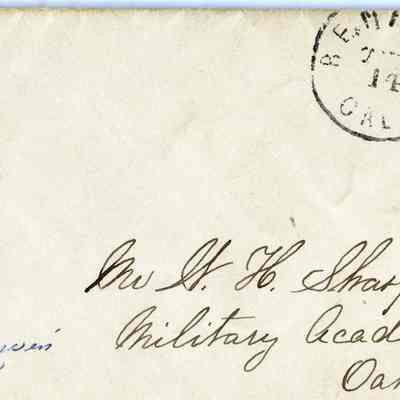 BENI
14
CAL
Mr W. H. Sharp
Military Acad
Oa